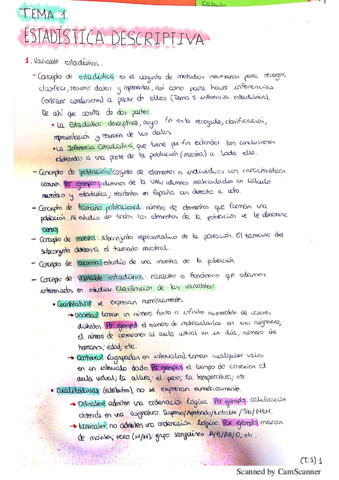 TEMA 1
ESTADÍSTICA DESCRIPTIVA
1. Variable estadística.
- Concepto de estadística: es el conjunto de métodos necesarios para recoger,
clasificar, resumir datos y representar, así como para hacer inferencias
(extraer conclusiones) a partir de ellos (Tema 5 inferencia estadística).
De ahí que consta de dos partes:
• La Estadística descriptiva, cuyo fin es la recogida, clasificación,
representación y resumen de los datos.
• La Inferencia Estadística, que tiene por fin extender las conclusiones
obtenido a una parte de la población (muestra) a toda ella.
- Concepto de población: conjunto de elementos o individuos con características
común. Por ejemplo: alumnos de la matriculados en cálculo
numérico y estadística; residentes en España con derecho a voto.
- Concepto de tamaño poblacional: número de elementos que forman una
población. Al estudio de todos los elementos de la población se le denomina
censo.
- Concepto de muestra: subconjunto representativo de la población. El tamaño del
subconjunto el tamaño muestral.
- Concepto de encuesta: estudio de una muestra de la población.
- Concepto de variable estadística: carácter o fenómeno que estamos
interesados en estudiar. Clasificación de las variables:
• Cuantitativas: se expresan numéricamente.
→ Discretas: toman un número finito o infinito numerable de valores
distintos. Por ejemplo: el número de matriculados en una asignatura,
el número de conexiones al aula virtual en un día, número de
hermanos, edad, etc.
→ Continuas: (agrupadas en intervalos) toman cualquier valor
en un intervalo dado. Por ejemplo: el tiempo de conexión al
aula virtual, la altura, el peso, la temperatura, etc.
• Cualitativas (atributos): no se expresan numéricamente.
→ Ordinales: admiten una ordenación lógica. Por ejemplo: calificación
obtenida en una asignatura: Suspenso/Aprobado/Notable/Sb/M.H.
→ Nominales: no admiten una ordenación lógica. Por ejemplo: marcas
de móviles, sexo (H/M), grupo sanguíneo A/B/AB/O, etc.
(T.1) 1
Scanned by CamScanner